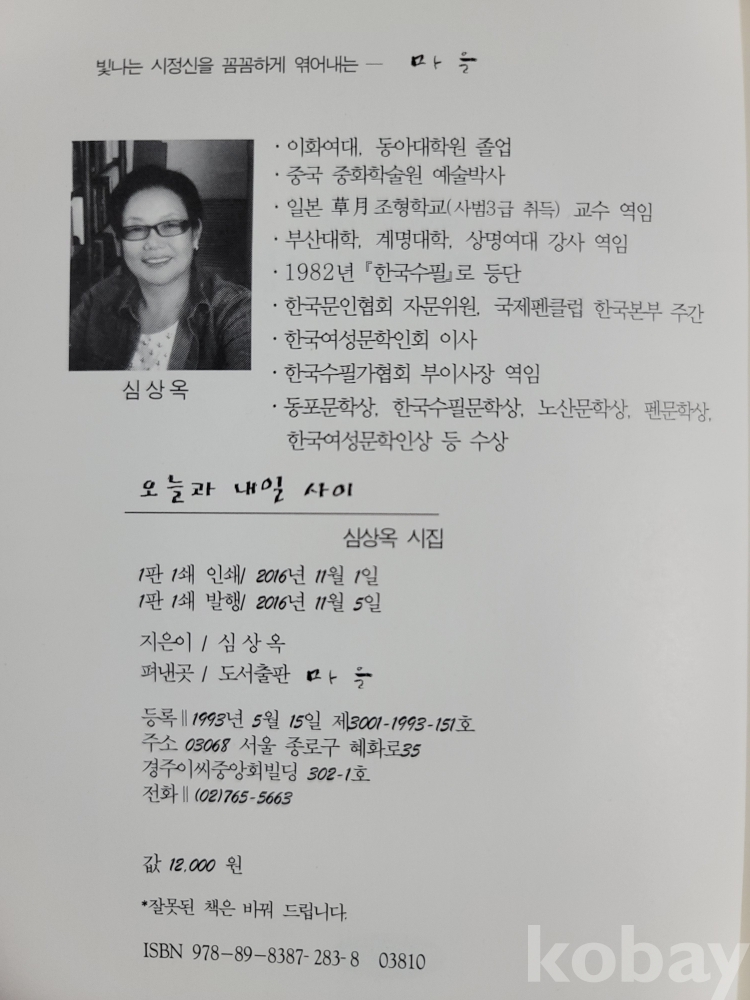 빛나는 시정신을 꼼꼼하게 엮어내는 — 마을
· 이화여대, 동아대학원 졸업
· 중국 중화학술원 예술박사
· 일본 草月조형학교(사범3급 취득) 교수 역임
· 부산대학, 계명대학, 상명여대 강사 역임
· 1982년 『한국수필』로 등단
· 한국문인협회 자문위원, 국제펜클럽 한국본부 주간
· 한국여성문학인회 이사
· 한국수필가협회 부이사장 역임
· 동포문학상, 한국수필문학상, 노산문학상, 펜문학상,
한국여성문학인상 등 수상
심상옥
오늘과 내일 사이
심상옥 시집
1판 1쇄 인쇄/ 2016년 11월 1일
1판 1쇄 발행/ 2016년 11월 5일
지은이 / 심상옥
펴낸곳 / 도서출판 마을
등록 ‖ 1993년 5월 15일 제3001-1993-151호
주소 03068 서울 종로구 혜화로35
경주이씨중앙회빌딩 302-1호
전화 ‖ (02)765-5663
값 12,000 원
*잘못된 책은 바꿔 드립니다.
ISBN 978-89-8387-283-8 03810
kobay